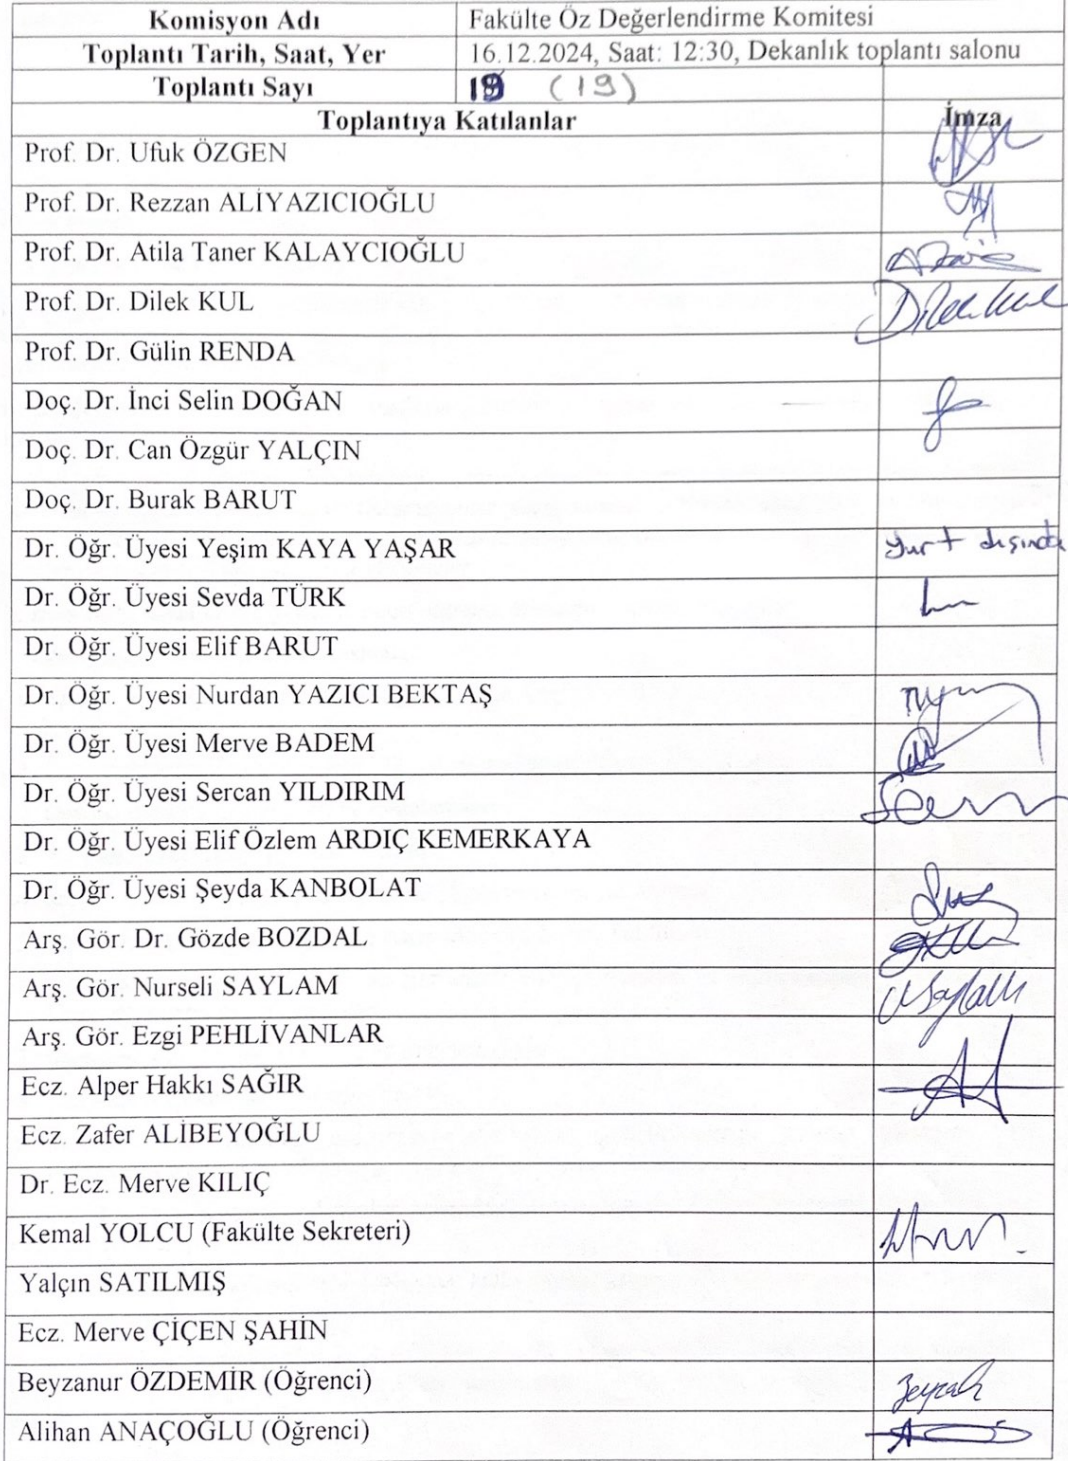 Komisyon Adı Fakülte Öz Değerlendirme Komitesi
Toplantı Tarih, Saat, Yer 16.12.2024, Saat: 12:30, Dekanlık toplantı salonu
Toplantı Sayı 19 (19)
Toplantıya Katılanlar İmza
Prof. Dr. Ufuk ÖZGEN
Prof. Dr. Rezzan ALİYAZICIOĞLU
Prof. Dr. Atila Taner KALAYCIOĞLU
Prof. Dr. Dilek KUL Dilek Kul
Prof. Dr. Gülin RENDA
Doç. Dr. İnci Selin DOĞAN
Doç. Dr. Can Özgür YALÇIN
Doç. Dr. Burak BARUT
Dr. Öğr. Üyesi Yeşim KAYA YAŞAR Yurt dışında
Dr. Öğr. Üyesi Sevda TÜRK
Dr. Öğr. Üyesi Elif BARUT
Dr. Öğr. Üyesi Nurdan YAZICI BEKTAŞ
Dr. Öğr. Üyesi Merve BADEM
Dr. Öğr. Üyesi Sercan YILDIRIM
Dr. Öğr. Üyesi Elif Özlem ARDIÇ KEMERKAYA
Dr. Öğr. Üyesi Şeyda KANBOLAT
Arş. Gör. Dr. Gözde BOZDAL
Arş. Gör. Nurseli SAYLAM
Arş. Gör. Ezgi PEHLİVANLAR
Ecz. Alper Hakkı SAĞIR
Ecz. Zafer ALİBEYOĞLU
Dr. Ecz. Merve KILIÇ
Kemal YOLCU (Fakülte Sekreteri)
Yalçın SATILMIŞ
Ecz. Merve ÇİÇEN ŞAHİN
Beyzanur ÖZDEMİR (Öğrenci)
Alihan ANAÇOĞLU (Öğrenci)